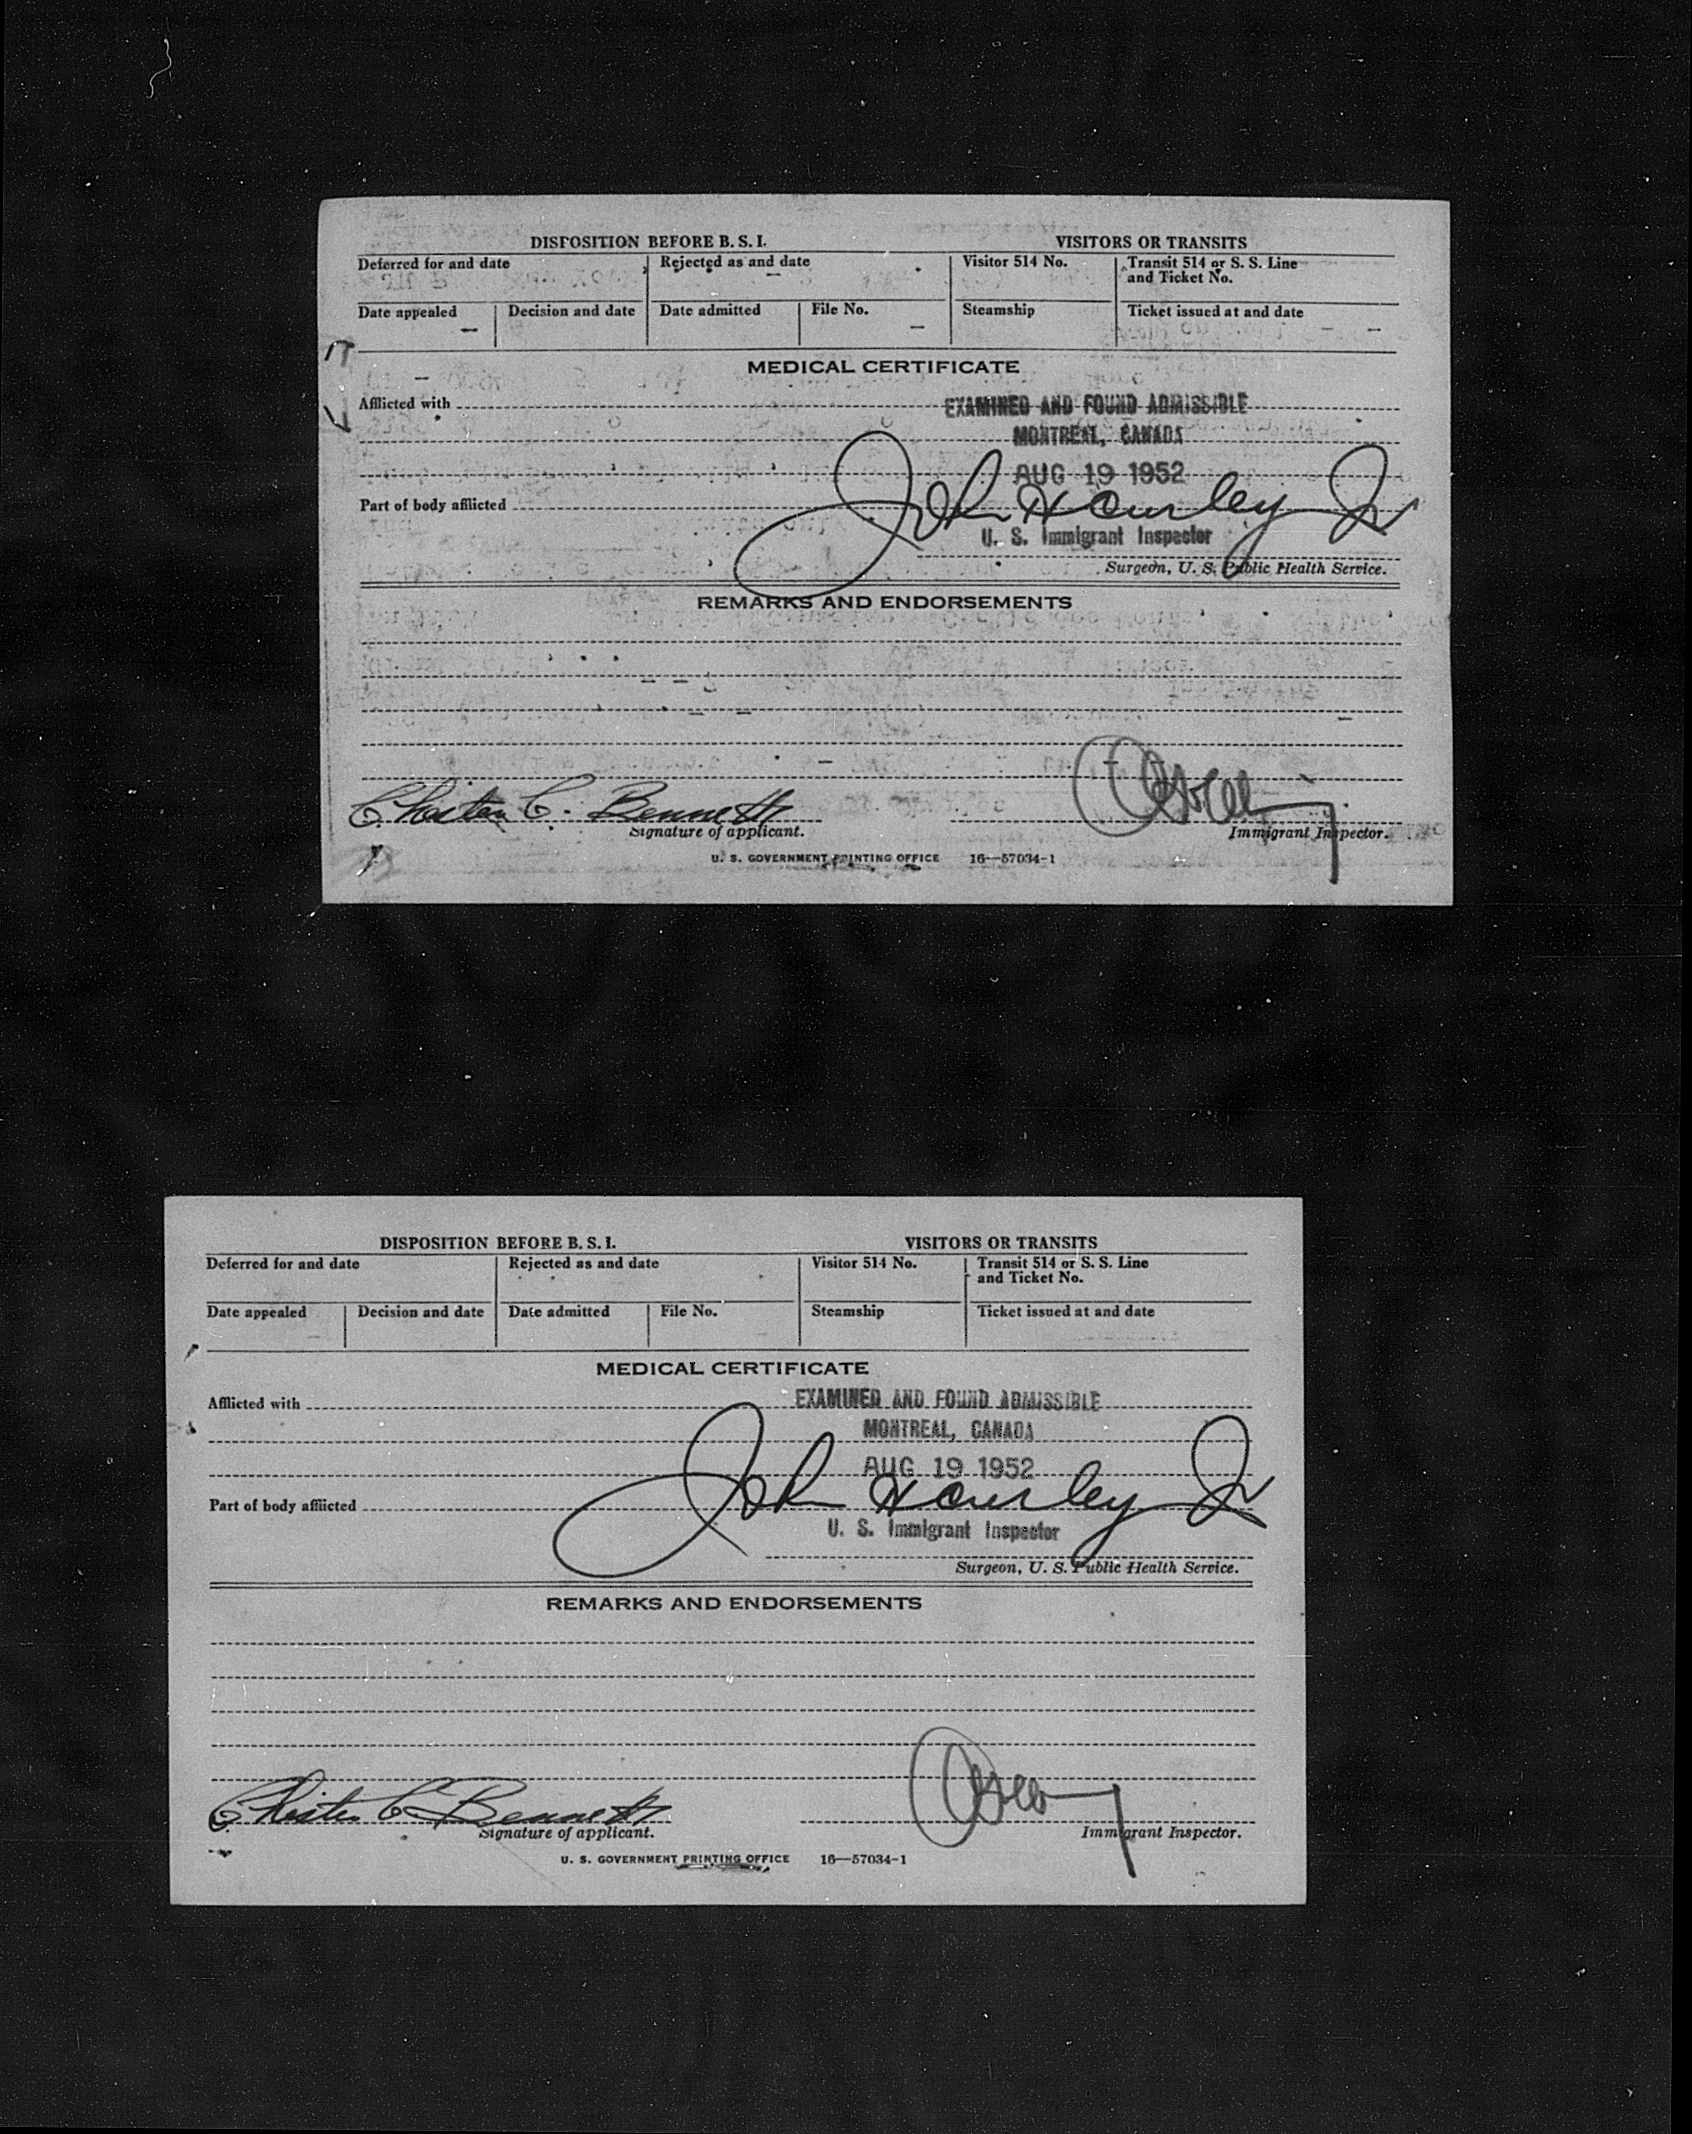 DISPOSITION BEFORE B. S. I.
VISITORS OR TRANSITS
Deferred for and date
Rejected as and date
Visitor 514 No.
Transit 514 or S. S. Line
and Ticket No.
Date appealed
Decision and date
Date admitted
File No.
Steamship
Ticket issued at and date
MEDICAL CERTIFICATE
Afflicted with
EXAMINED AND FOUND ADMISSIBLE
MONTREAL, CANADA
AUG 19 1952
Part of body afflicted
John Hawley Jr
U. S. Immigrant Inspector
Surgeon, U. S. Public Health Service.
REMARKS AND ENDORSEMENTS
C. Bennett
Signature of applicant.
Immigrant Inspector.
U. S. GOVERNMENT PRINTING OFFICE 16—57034-1
DISPOSITION BEFORE B. S. I.
VISITORS OR TRANSITS
Deferred for and date
Rejected as and date
Visitor 514 No.
Transit 514 or S. S. Line
and Ticket No.
Date appealed
Decision and date
Date admitted
File No.
Steamship
Ticket issued at and date
MEDICAL CERTIFICATE
Afflicted with
EXAMINED AND FOUND ADMISSIBLE
MONTREAL, CANADA
AUG 19 1952
Part of body afflicted
John Hawley Jr
U. S. Immigrant Inspector
Surgeon, U. S. Public Health Service.
REMARKS AND ENDORSEMENTS
C Bennett
Signature of applicant.
Immigrant Inspector.
U. S. GOVERNMENT PRINTING OFFICE 16—57034-1